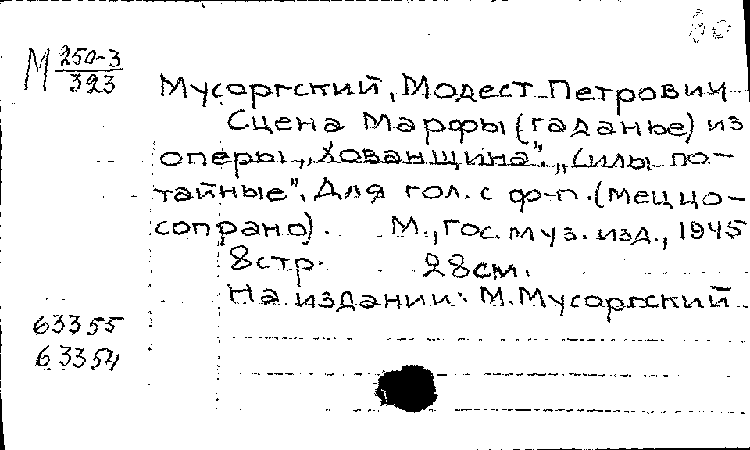 60
М 250-3
393
Мусоргский, Модест Петрович
Сцена Марфы (гаданье) из
оперы „Хованщина". „Силы по-
тайные". Для гол. с ф-п. (меццо-
сопрано). М., Гос. муз. изд., 1945
8 стр. 28 см.
На издании: М. Мусоргский
63355
63354